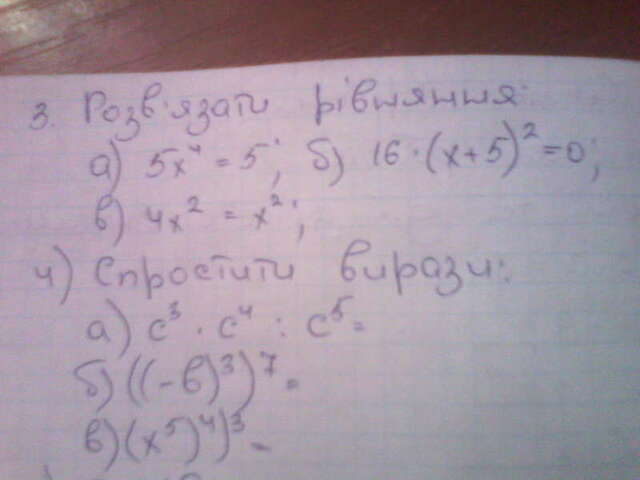 3. Розв'язати рівняння:
а) 5x⁴ = 5; б) 16·(x+5)² = 0;
в) 4x² = x²;
4) Спростити вирази:
а) c³ · c⁴ : c⁵ =
б) ((-в)³)⁷ =
в) (x⁵)⁴)³ =